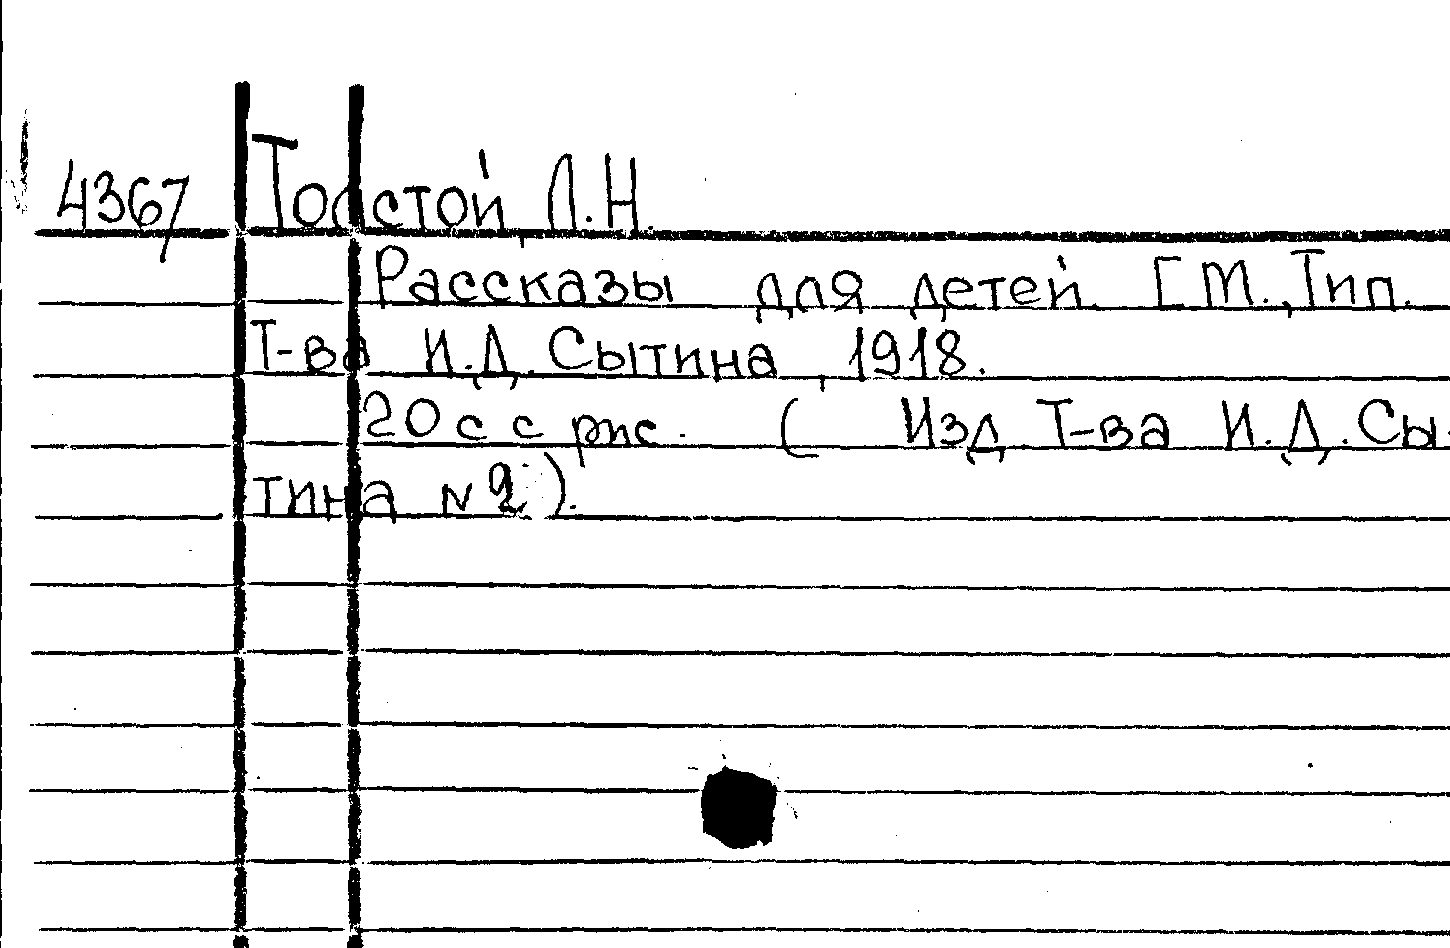 4367 Толстой, Л.Н.
Рассказы для детей. [М., Тип.
Т-ва И.Д. Сытина, 1918.
20 с с рис. ( Изд Т-ва И.Д. Сы-
тина N 2).